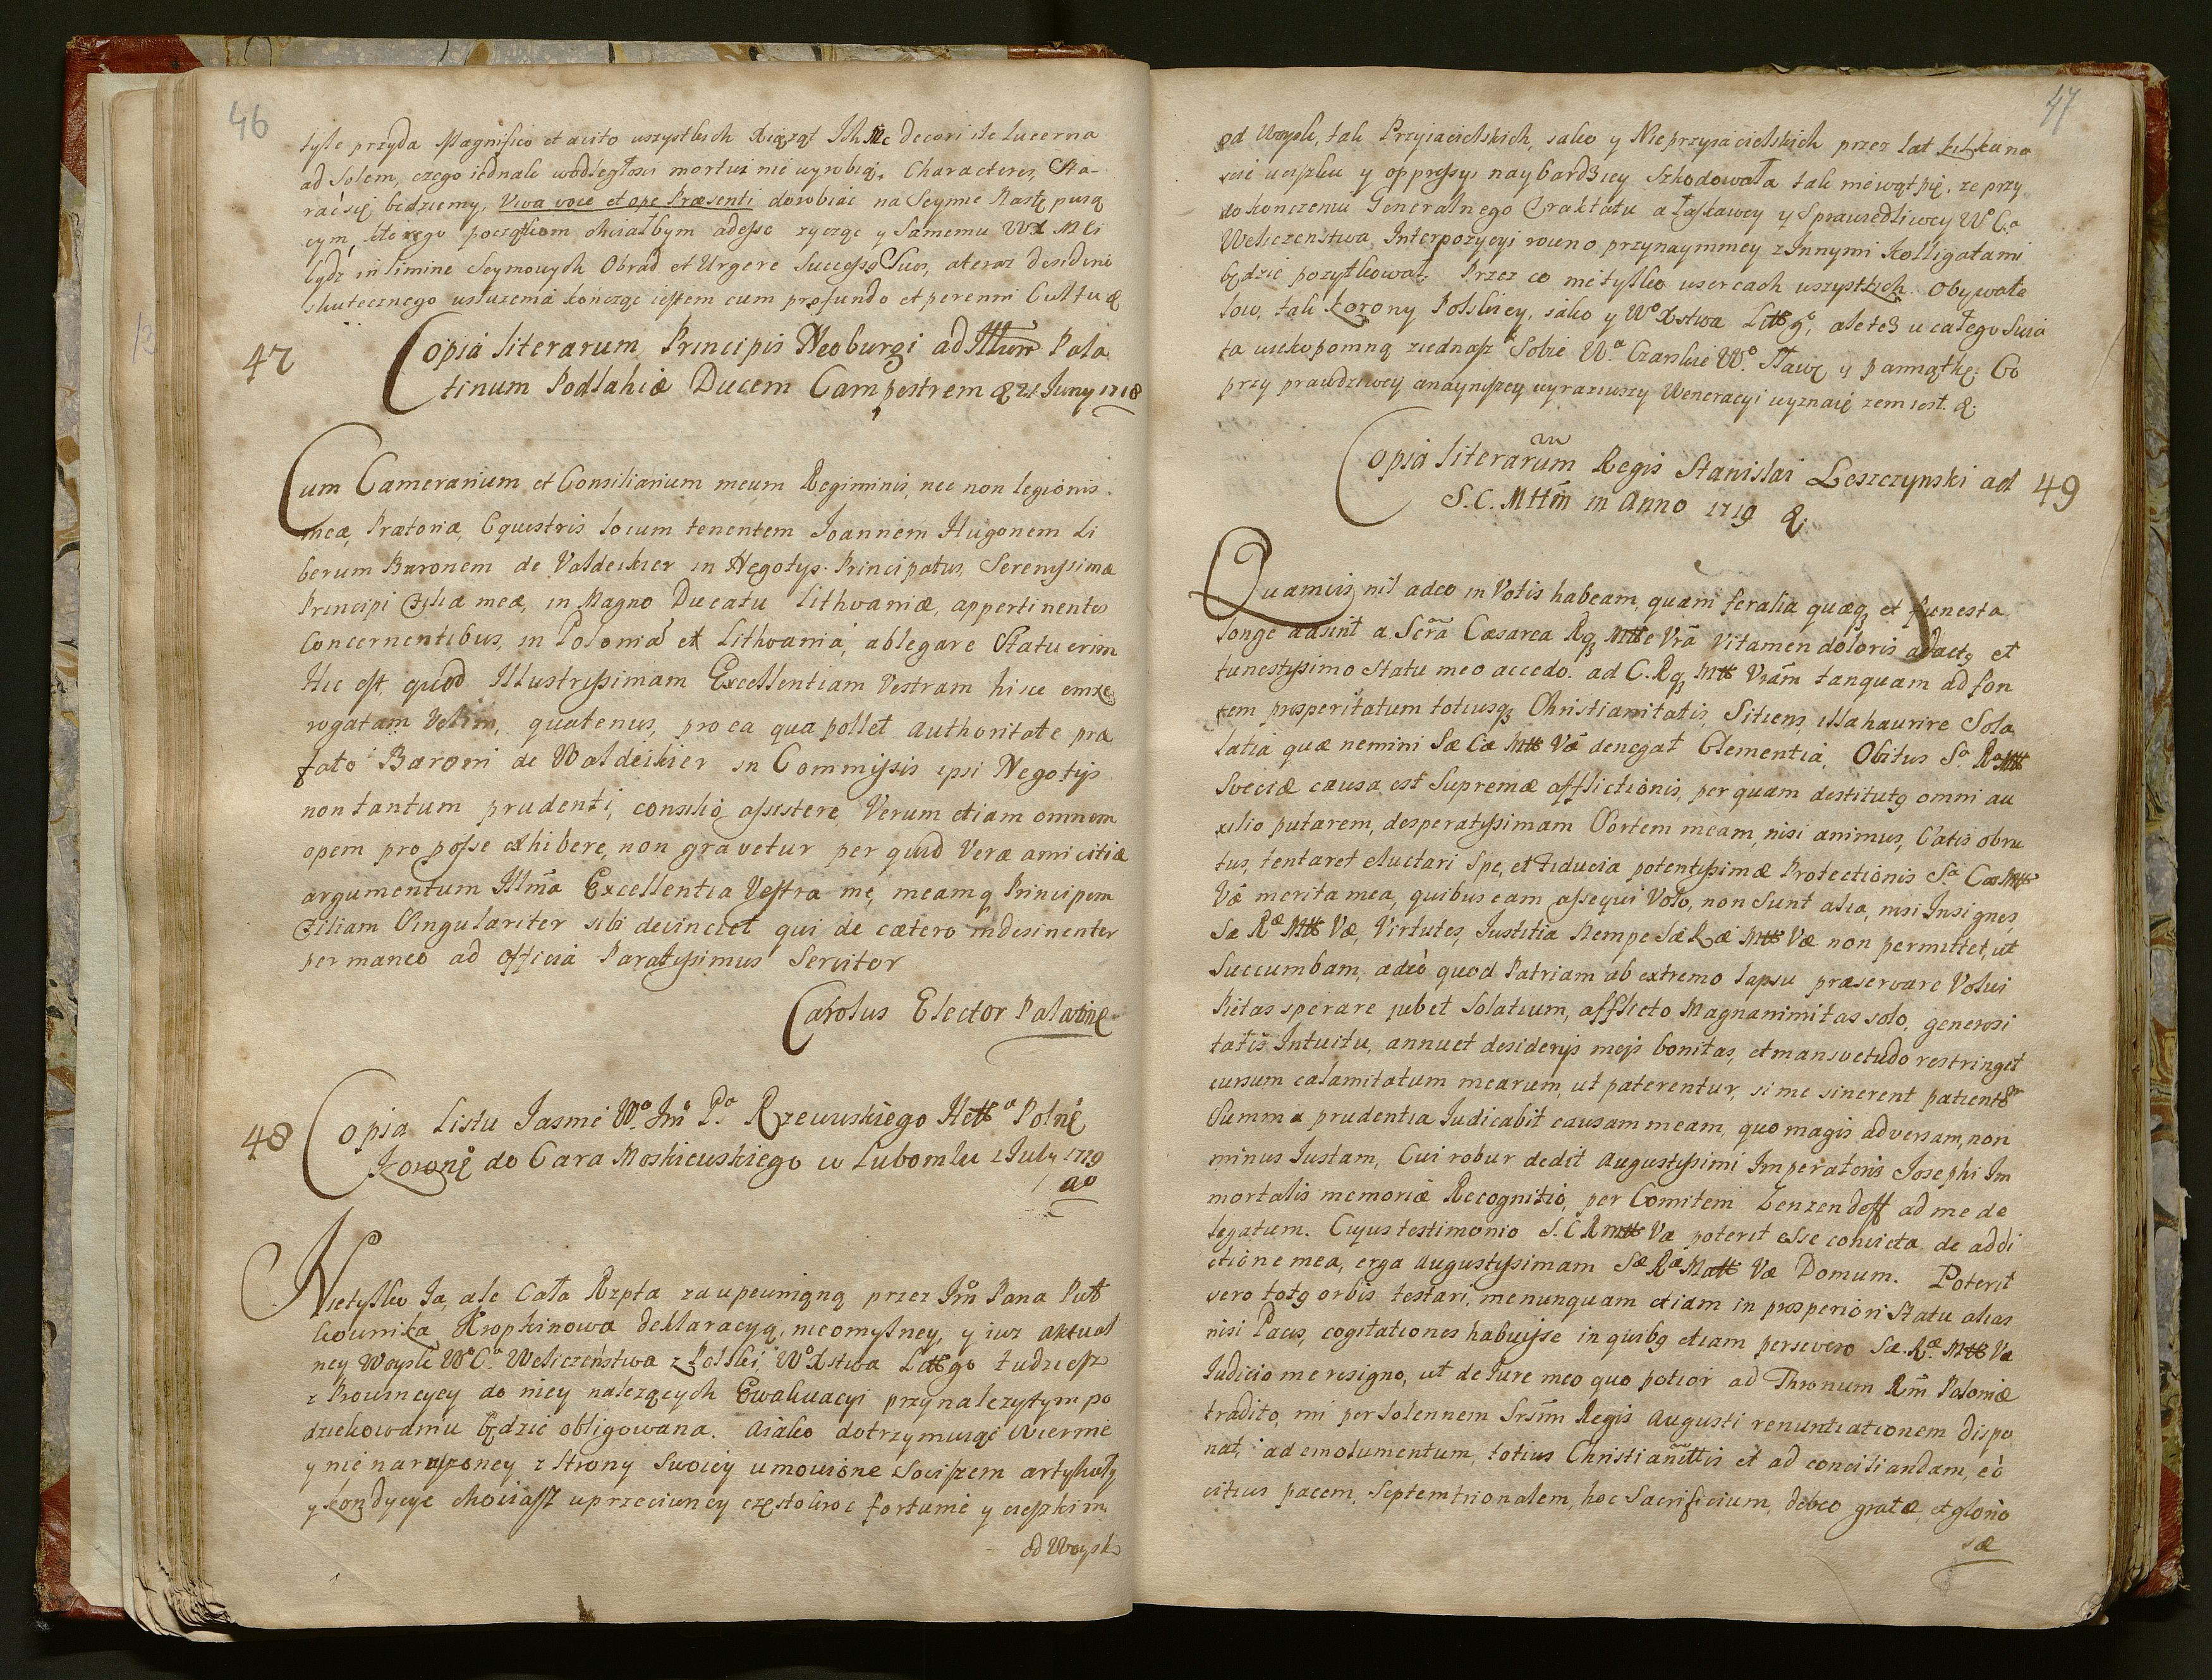 46
tyle przyda Magnifico et avito wszystkich Xiążąt Ich Mc Decori ile lucerna
ad Solem, czego iednak w odległości mortui nie wyrobią Characteres, Sta-
rać się będziemy, Viva voce et ope Præsenti dorobiać na Seymie Nastę puią
cym, ktorego początkom chciałbym adesse zycząc y Samemu WX Mci
bydź in limine Seymowych Obrad et Urgere Successo Suos, a teraz desiderio
skutecznego usłuzenia kończąc iestem cum profundo et perenni Cultu &
47
Copia literarum Principis Neoburgi ad Illum Pala
tinum Podlahiæ Ducem Campestrem & 21 Juny 1718
Cum Camerarium et Consiliarium meum Regiminis, nec non legionis
meæ, Prætoriæ, Equestris locum tenentem Joannem Hugonem Li
berum Baronem de Valdeikier in Negotys Principatus, Serenyssimæ
Principi Filiæ meæ, in Magno Ducatu Lithvaniæ, appertinentes
Concernentibus, in Polonia et Lithvania, ablegare Statuerim
Hic est, quod Illustrissimam Excellentiam Vestram hisce enixe
rogatam Velim, quatenus, pro ea qua pollet authoritate præ
fato Baroni de Waldeikier in Commyssis ipsi Negotys
non tantum prudenti, consilio assistere Verum etiam omnem
opem pro posse exhibere, non gravetur per quid Veræ amicitiæ
argumentum Illma Excellentia Vestra me, meamq Principem
Filiam Singulariter sibi devinciet qui de cætero indesinenter
permaneo ad officia Paratyssimus Servitor
Carolus Elector Palatine
48
Copia Listu Jasnie Wo Jm Pa Rzewuskiego Hettа Polne
Koronne do Cara Moskiewskiego w Lubomlu 1 July 1719
ao
Nietylko Ja, ale Cała Rzpta zaupewnioną przez Jm Pana Puł
kownika Kropkinowa deklaracyą, nieomylney, y iuz aktual
ney Woysk Wo Ca Weliczeństwa z Polski, Wo Xstwa Littgo tudziesz
z Prowincyey do niey nalezących Ewakuacyi przynalezytym po
dziekowaniu będzie obligowana. A iako dotrzymuiąc Wiernie
y nie naruszoney z Strony Swoiey umowione Sociszem artykuły
y kondycye chociasz uprzeciwney częstokroc fortunie y cieszkim
od Woysk
47
od Woysk, tak Przyiacielskich, iako y Nieprzyiacielskich przez lat kilkana
scie uciszku y oppressyi naybardziey Szkodowała tak niewątpię, ze przy
dokonczeniu Generalnego Traktatu a łaskawey y Sprawiedliwey W Ca
Weliczenstwa, Interpozycyi rowno przynaymniey z Innymi Kolligatami
będzie pozytkował. Przez co nietylko usercach wszystkich Obywate
low, tak Korony Polskiey, iako y Wo Xstwa Littgo, ale też u całego Swia
ta wiekopomną ziednasz Sobie Wa Czarskie Wo Sławę y pamiątkę. Co
przy prawdziwey anayniszey wyraziwszy Weneracyi wyznaię zem iest &
Copia literarum Regis Stanislai Leszczynski ad
S. C. Mttm in Anno 1719 &
49
Quamvis nil adeo in Votis habeam, quam feralia quæq et funesta
longe adsint a Serra Cæsarea Rq Mtte Vra Vitamen doloris adactg et
funestyssimo Statu meo accedo ad C. Rq Mtt Vram tanquam ad fon
tem prosperitatum totiusq Christianitatis, Sitiens, illa haurire Sola
latia quæ nemini Sæ Cæ Mtt Væ denegat Clementia. Obitus Sa Ra Mtt
Sveciæ causa est Supremæ afflictionis, per quam destitutg omni au
xilio putarem, desperatyssimam Sortem meam, nisi animus, Satis obru
tus, tentaret eluctari Spe, et Fiducia potentyssimæ Protectionis Sa Cæ Mtt
Væ merita mea, quibus eam assequi Volo, non Sunt alia, nisi Insignes,
Sæ Ræ Mtt Væ, Virtutes, Justitia Nempe Sæ Ræ Mtt Væ non permittet, ut
Succumbam, adeo quod Patriam ab extremo lapsu præservare Volui
Pietas sperare jubet Solatium, afflicto Magnanimitas solo, generosi
tatis Intuitu, annuet desiderys meis bonitas, et mansvetudo restringet
cursum calamitatum mearum, ut paterentur, si me sinerent patient
Summa prudentia Judicabit causam meam, quo magis adversam, non
minus Justam, Cui robur dedit Augustyssimi Imperatoris Josephi Im
mortalis memoriæ Recognitio, per Comitem Zenzendoff ad me de
legatum. Cuyus testimonio S. C R Mtt Væ poterit esse convicta de addi
ctione mea, erga augustyssimam Sæ Ræ Matt Væ Domum. Poterit
vero totg orbis testari, me nunquam etiam in prosperiori Statu alias
nisi Pacis, cogitationes habuisse in quibg etiam persevero Sæ. Ræ Mtt Væ
Judicio me resigno, ut de Jure meo quo potior ad Thronum Rm Poloniæ
tradito, mi per Solennem Srsm Regis Augusti renuntiationem dispo
nat, ad emolumentum, totius Christianittis et ad conciliandam, eo
citius pacem, Septemtrionalem, hoc Sacrificium, debeo gratæ, et glorio
sæ